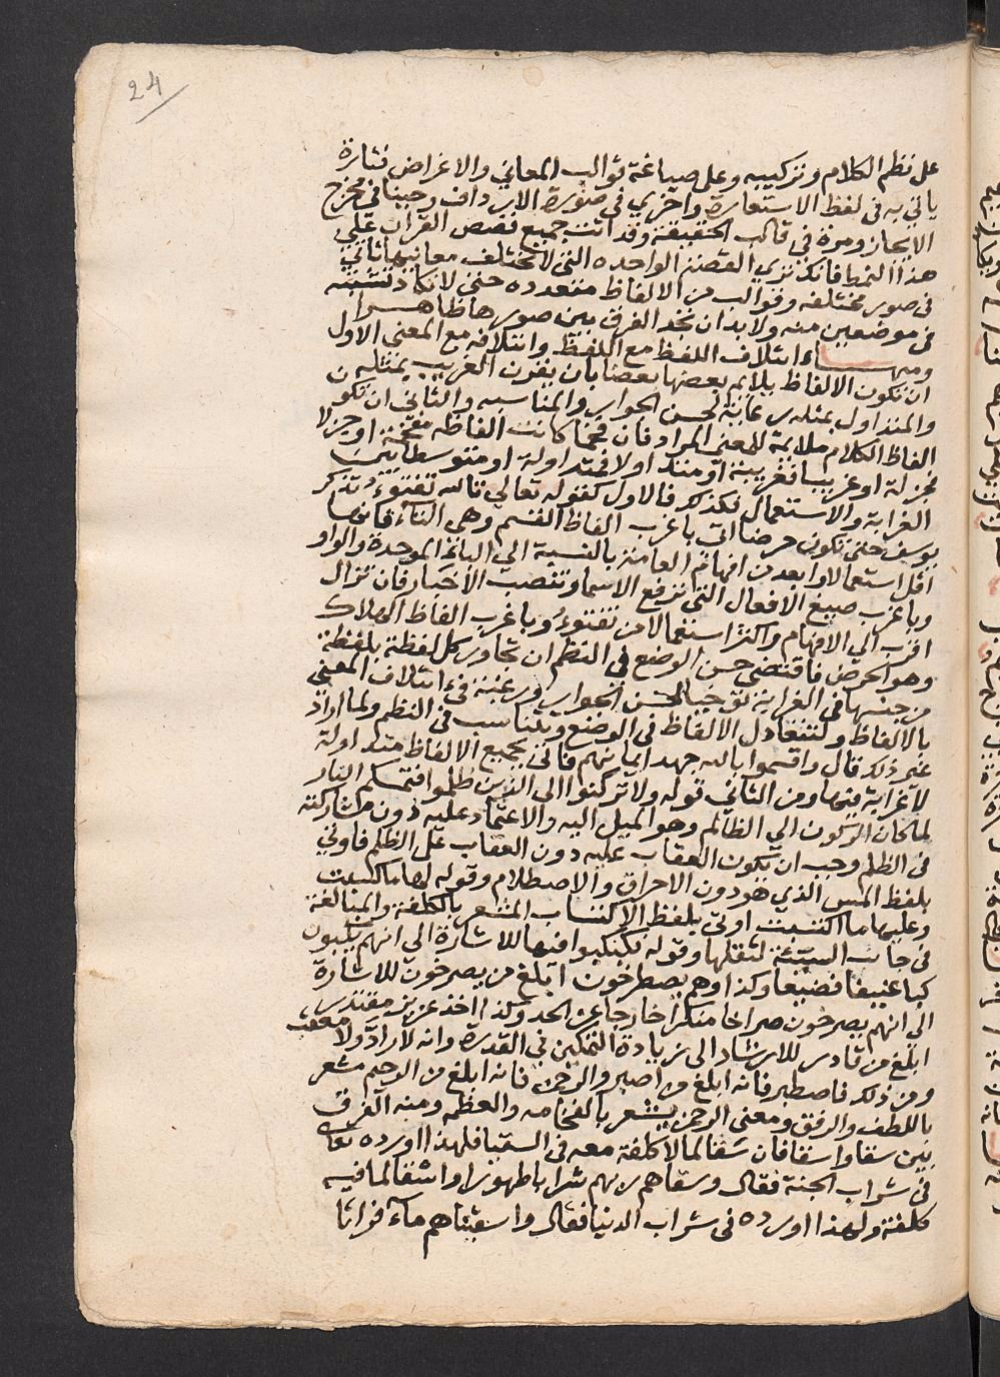 24
على نظم الكلام وتركيبه وعلى صياغة قوالب المعاني والاغراض فتارة
ياتي به في لفظ الاستعارة واخري في صورة الارداف وحينا في مخرج
الايجاز ومرة في قالب الحقيقة وقد اتت جميع قصص القران على
هذا النمط فانك تري القصة الواحده التي لا تختلف معانيها تاتي
في صور مختلفه وقوالب من الالفاظ متعدده حتى لا تكاد تشتبه
في موضعين منه ولا بد ان تجد الفرق بين صورها ظاهرا
ومنها ائتلاف اللفظ مع اللفظ وائتلافه مع المعنى الاول
ان تكون الالفاظ يلايم بعضها بعضا بان يقرن الغريب بمثله
والمتداول بمثله رعاية لحسن الجوار والمناسبه والثاني ان تكون
الفاظ الكلام ملايمة للمعنى المراد فان فخما كانت الفاظه مفخمة او جزلا
فجزلة او غريبا فغريبة او متداولا فمتداولة او متوسطا بين
الغرابة والاستعمال فكذلك فالاول كقوله تعالى تالله تفتوء تذكر
يوسف حتى تكون حرضا اتى باغرب الفاظ القسم وهي التاء فانها
اقل استعمالا وابعد من افهام العامة بالنسبة الي الباء الموحدة والواو
وباغرب صيغ الافعال التي ترفع الاسما وتنصب الاخبار فان تزال
اقرب الي الافهام واكثر استعمالا من تفتوء وباغرب الفاظ الهلاك
وهو الحرض فاقتضى حسن الوضع في النظم ان تجاور كل لفظة بلفظة
من جنسها في الغرابة توخيا لحسن الجوار ورغبة في ائتلاف المعنى
بالالفاظ ولتتعادل الالفاظ في الوضع وتتناسب في النظم ولما اراد
غير ذلك قال واقسموا بالله جهد ايمانهم فاتى بجميع الالفاظ متداولة
لا غرابة فيها ومن الثاني قوله ولا تركنوا الى الذين ظلموا فتمسكم النار
لما كان الركون الي الظالم وهو الميل اليه والاعتماد عليه دون مشاركته
في الظلم وجب ان يكون العقاب عليه دون العقاب على الظلم فاوتي
بلفظ المس الذي هو دون الاحراق والاصطلام وقوله لها ما كسبت
وعليها ما اكتسبت اوتى بلفظ الاكتساب المشعر بالكلفة والمبالغة
في جانب السيئة لثقلها وقوله فكبكبوا فيها للاشارة الى انهم يكبون
كبا عنيفا فضيعا وكذا وهم يصطرخون ابلغ من يصرخون للاشارة
الى انهم يصرخون صراخا منكرا خارجا عن الحد وكذا اخذ عزيز مقتدر
ابلغ من قادر للارشاد الى زيادة التمكين في القدرة وانه لا راد ولا معقب
ومن ذلك فاصطبر فانه ابلغ من اصبر والرحمن فانه ابلغ من الرحيم مشعر
باللطف والرفق ومعنى الرحمن يشعر بالفخامه والعظمه ومنه الفرق
بين سقا واسقا فان سقا لما لا كلفة معه في السقيا فلهذا اورده تعالى
في شراب الجنة فقال وسقاهم ربهم شرابا طهورا واسقا لما فيه
كلفة ولهذا اورده في شراب الدنيا فقال واسقيناهم ماء فراتا